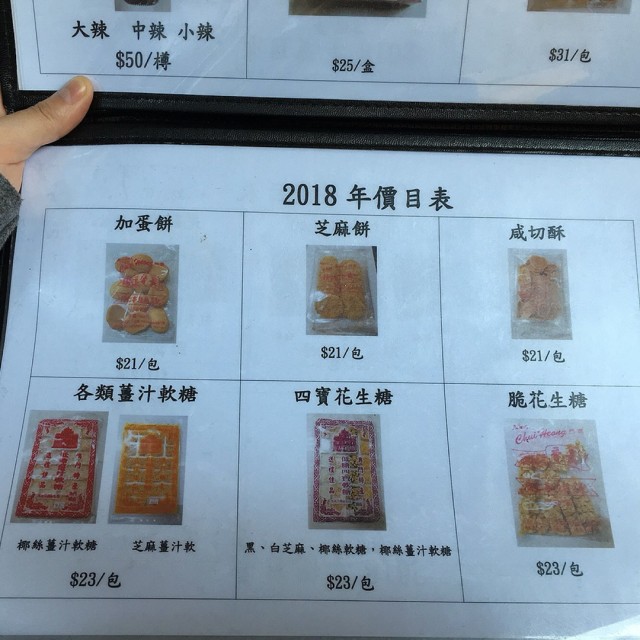 大辣 中辣 小辣
$50/樽
$25/盒
$31/包
2018 年價目表
加蛋餅
芝麻餅
咸切酥
$21/包
$21/包
$21/包
各類薑汁軟糖
四寶花生糖
脆花生糖
椰絲薑汁軟糖
芝麻薑汁軟
黑、白芝麻、椰絲軟糖，椰絲薑汁軟糖
$23/包
$23/包
$23/包